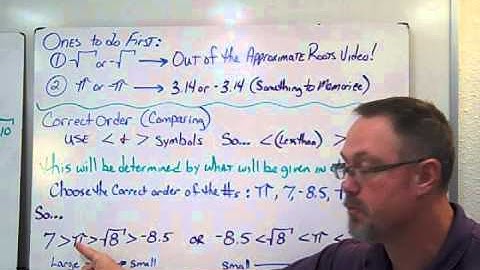 Ones to do First:
① √ or -√ → Out of the Approximate Roots Video!
② π or -π → 3.14 or -3.14 (Something to Memorize)
Correct Order (Comparing)
Use < & > symbols So... < (Less than) >
This will be determined by what will be given in
Choose the Correct order of the #s: π, 7, -8.5,
So...
7 > π > √8 > -8.5 or -8.5 < √8 < π <
Large → small small →
10